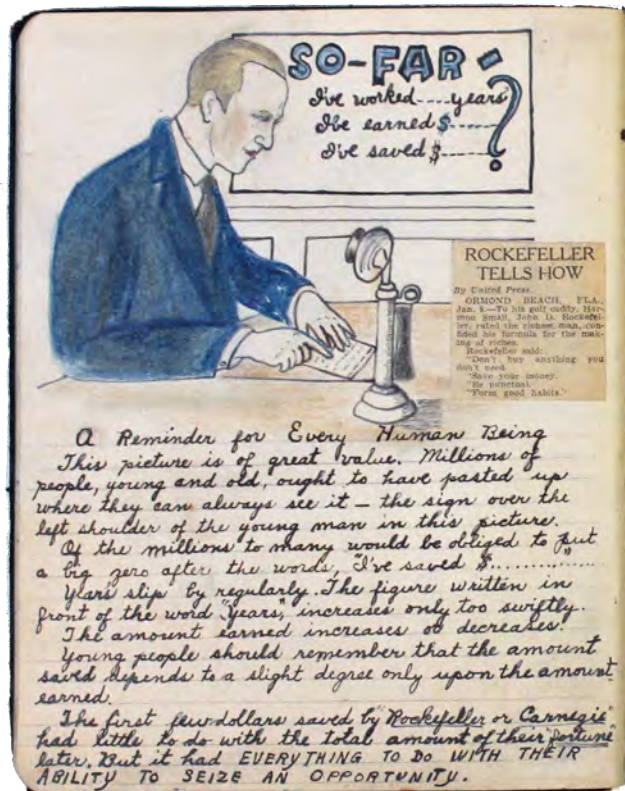 SO-FAR-?
I've worked----years
I've earned $-----
I've saved $------
ROCKEFELLER
TELLS HOW
By United Press.
ORMOND BEACH, FLA.,
Jan. 8.—To his golf caddy, Har-
mon Small, John D. Rockefel-
ler, rated the richest man, con-
fided his formula for the mak-
ing of riches.
Rockefeller said:
"Don't buy anything you
don't need.
"Save your money.
"Be punctual.
"Form good habits."
A Reminder for Every Human Being
This picture is of great value. Millions of
people, young and old, ought to have pasted up
where they can always see it — the sign over the
left shoulder of the young man in this picture.
Of the millions to many would be obliged to put
a big zero after the words, "I've saved $.............."
Years slip by regularly. The figure written in
front of the word "years", increases only too swiftly.
The amount earned increases or decreases.
Young people should remember that the amount
saved depends to a slight degree only upon the amount
earned.
The first few dollars saved by "Rockefeller or Carnegie"
had little to do with the total amount of their "fortune"
later. But it had EVERYTHING TO DO WITH THEIR
ABILITY TO SEIZE AN OPPORTUNITY.